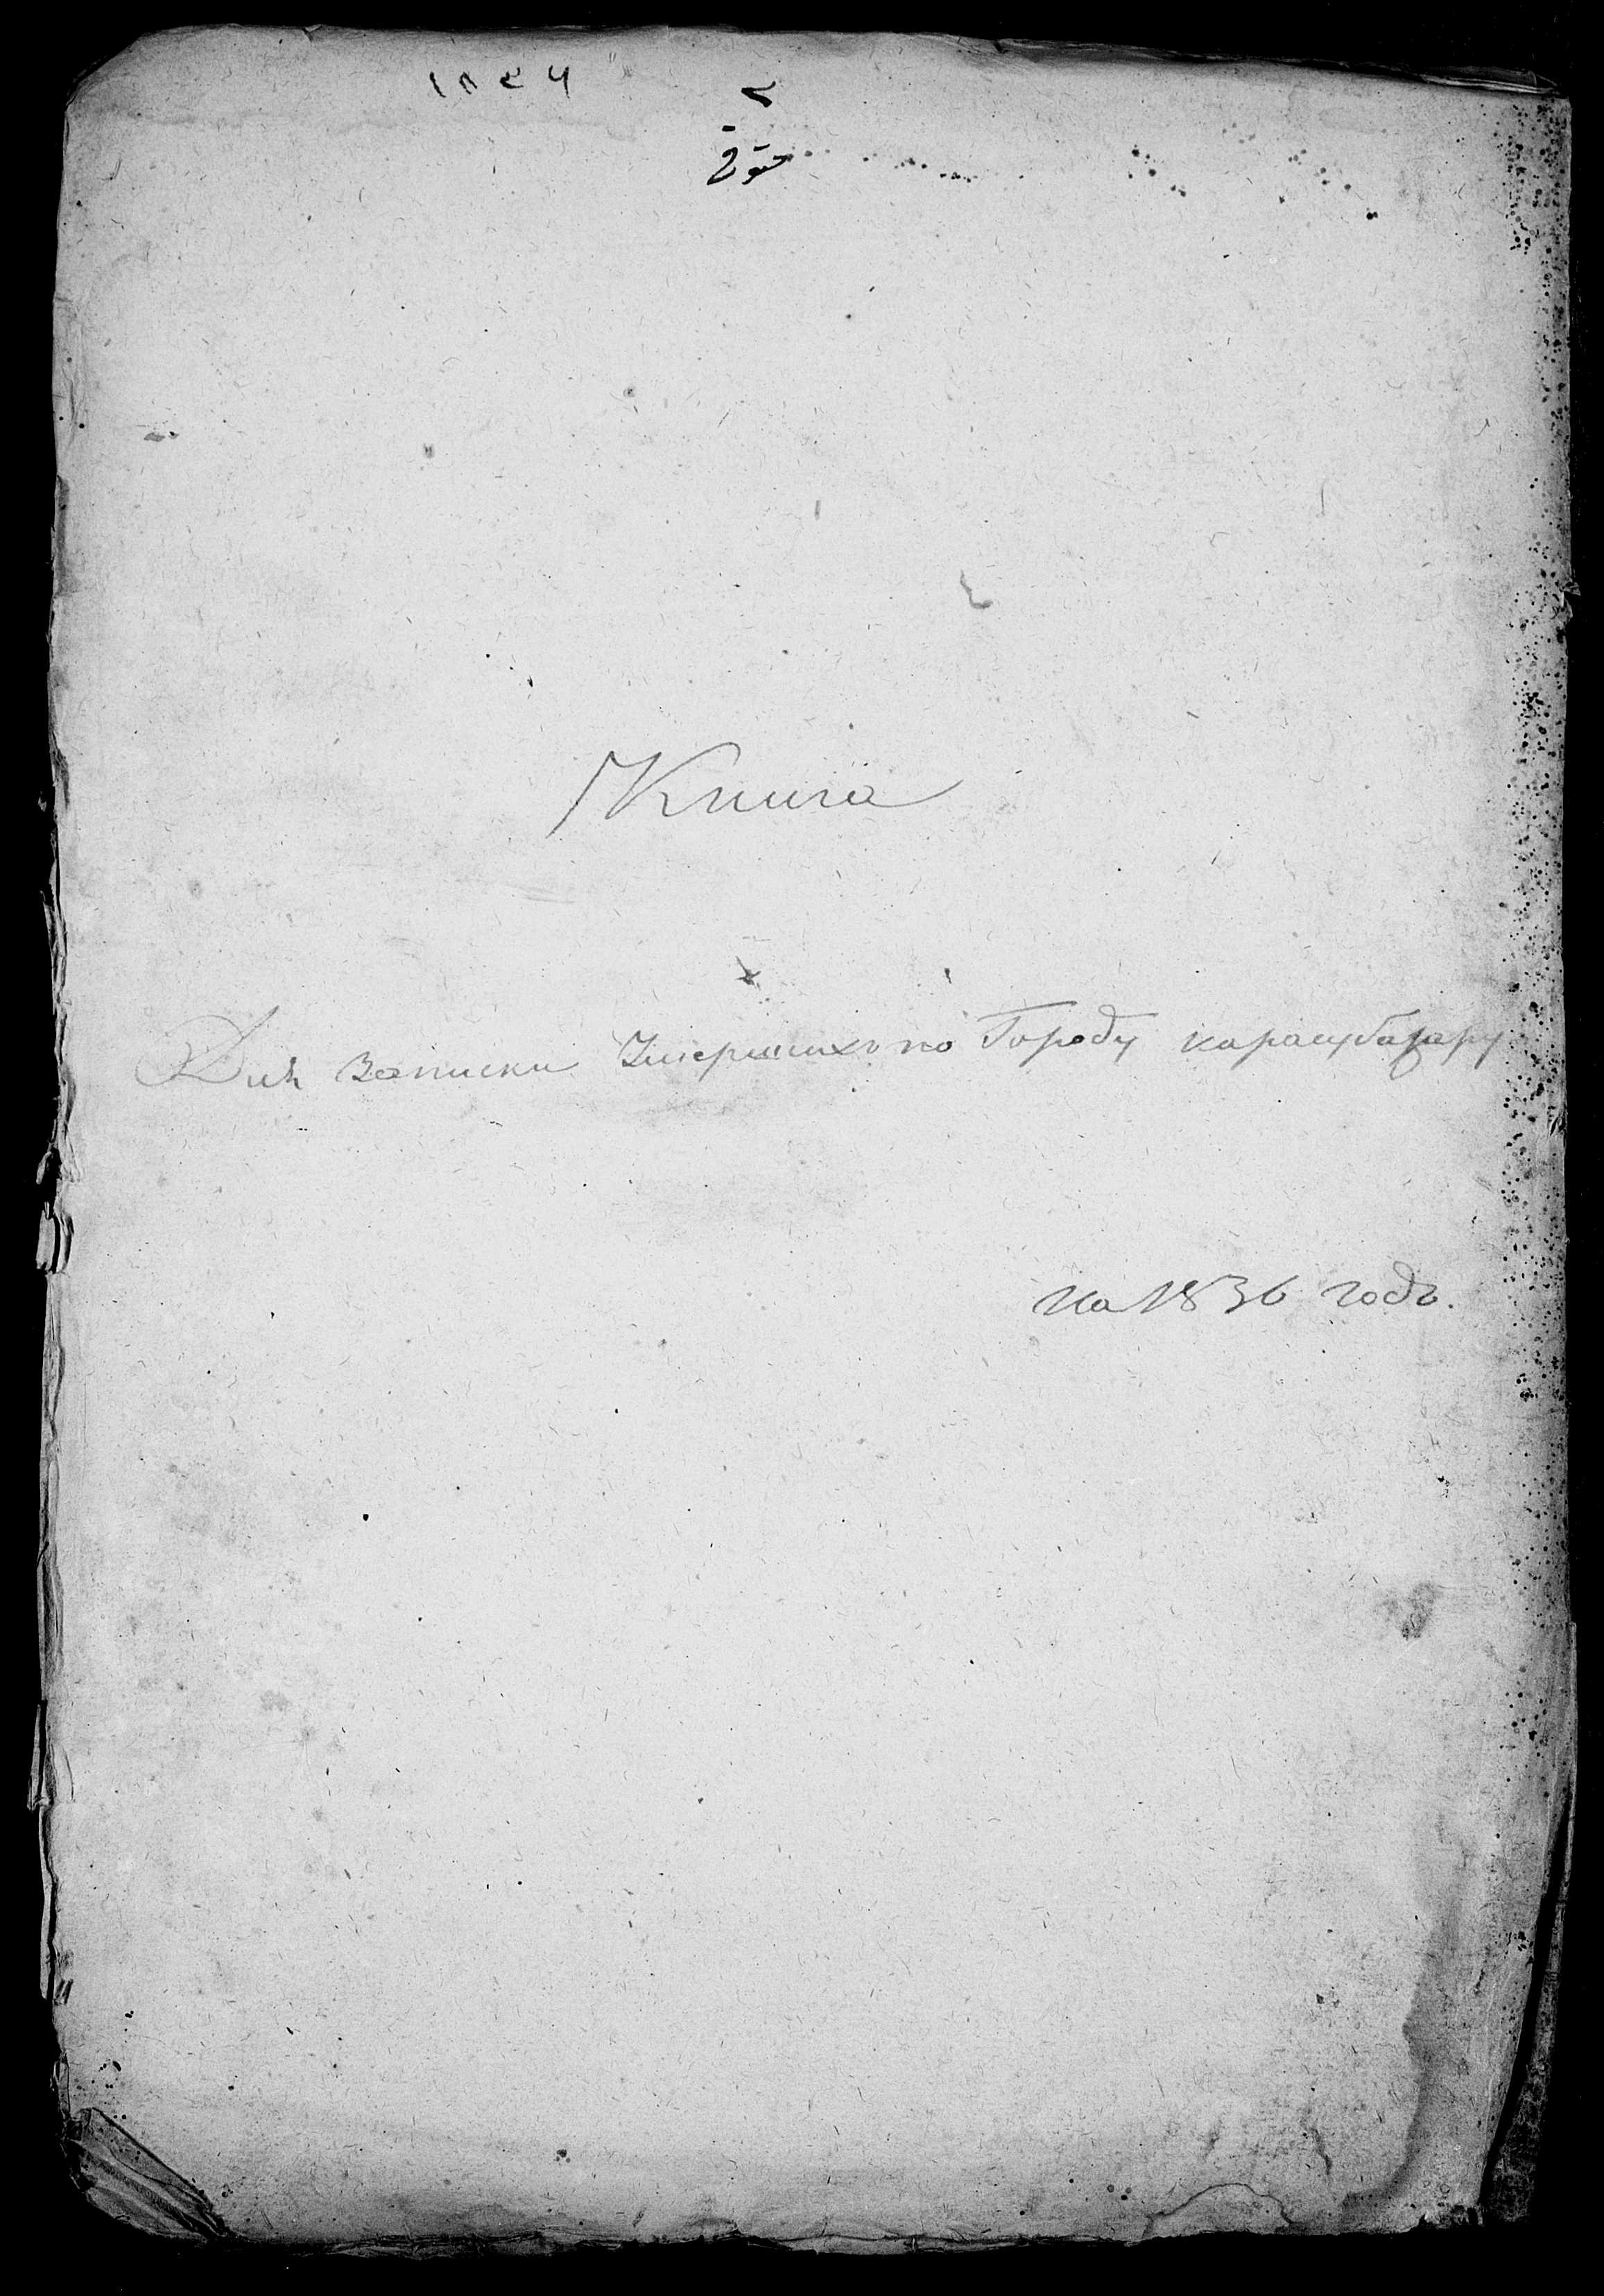 Книга
Для записки Умершихъ по Городу карасубазару
на 1836 годъ.